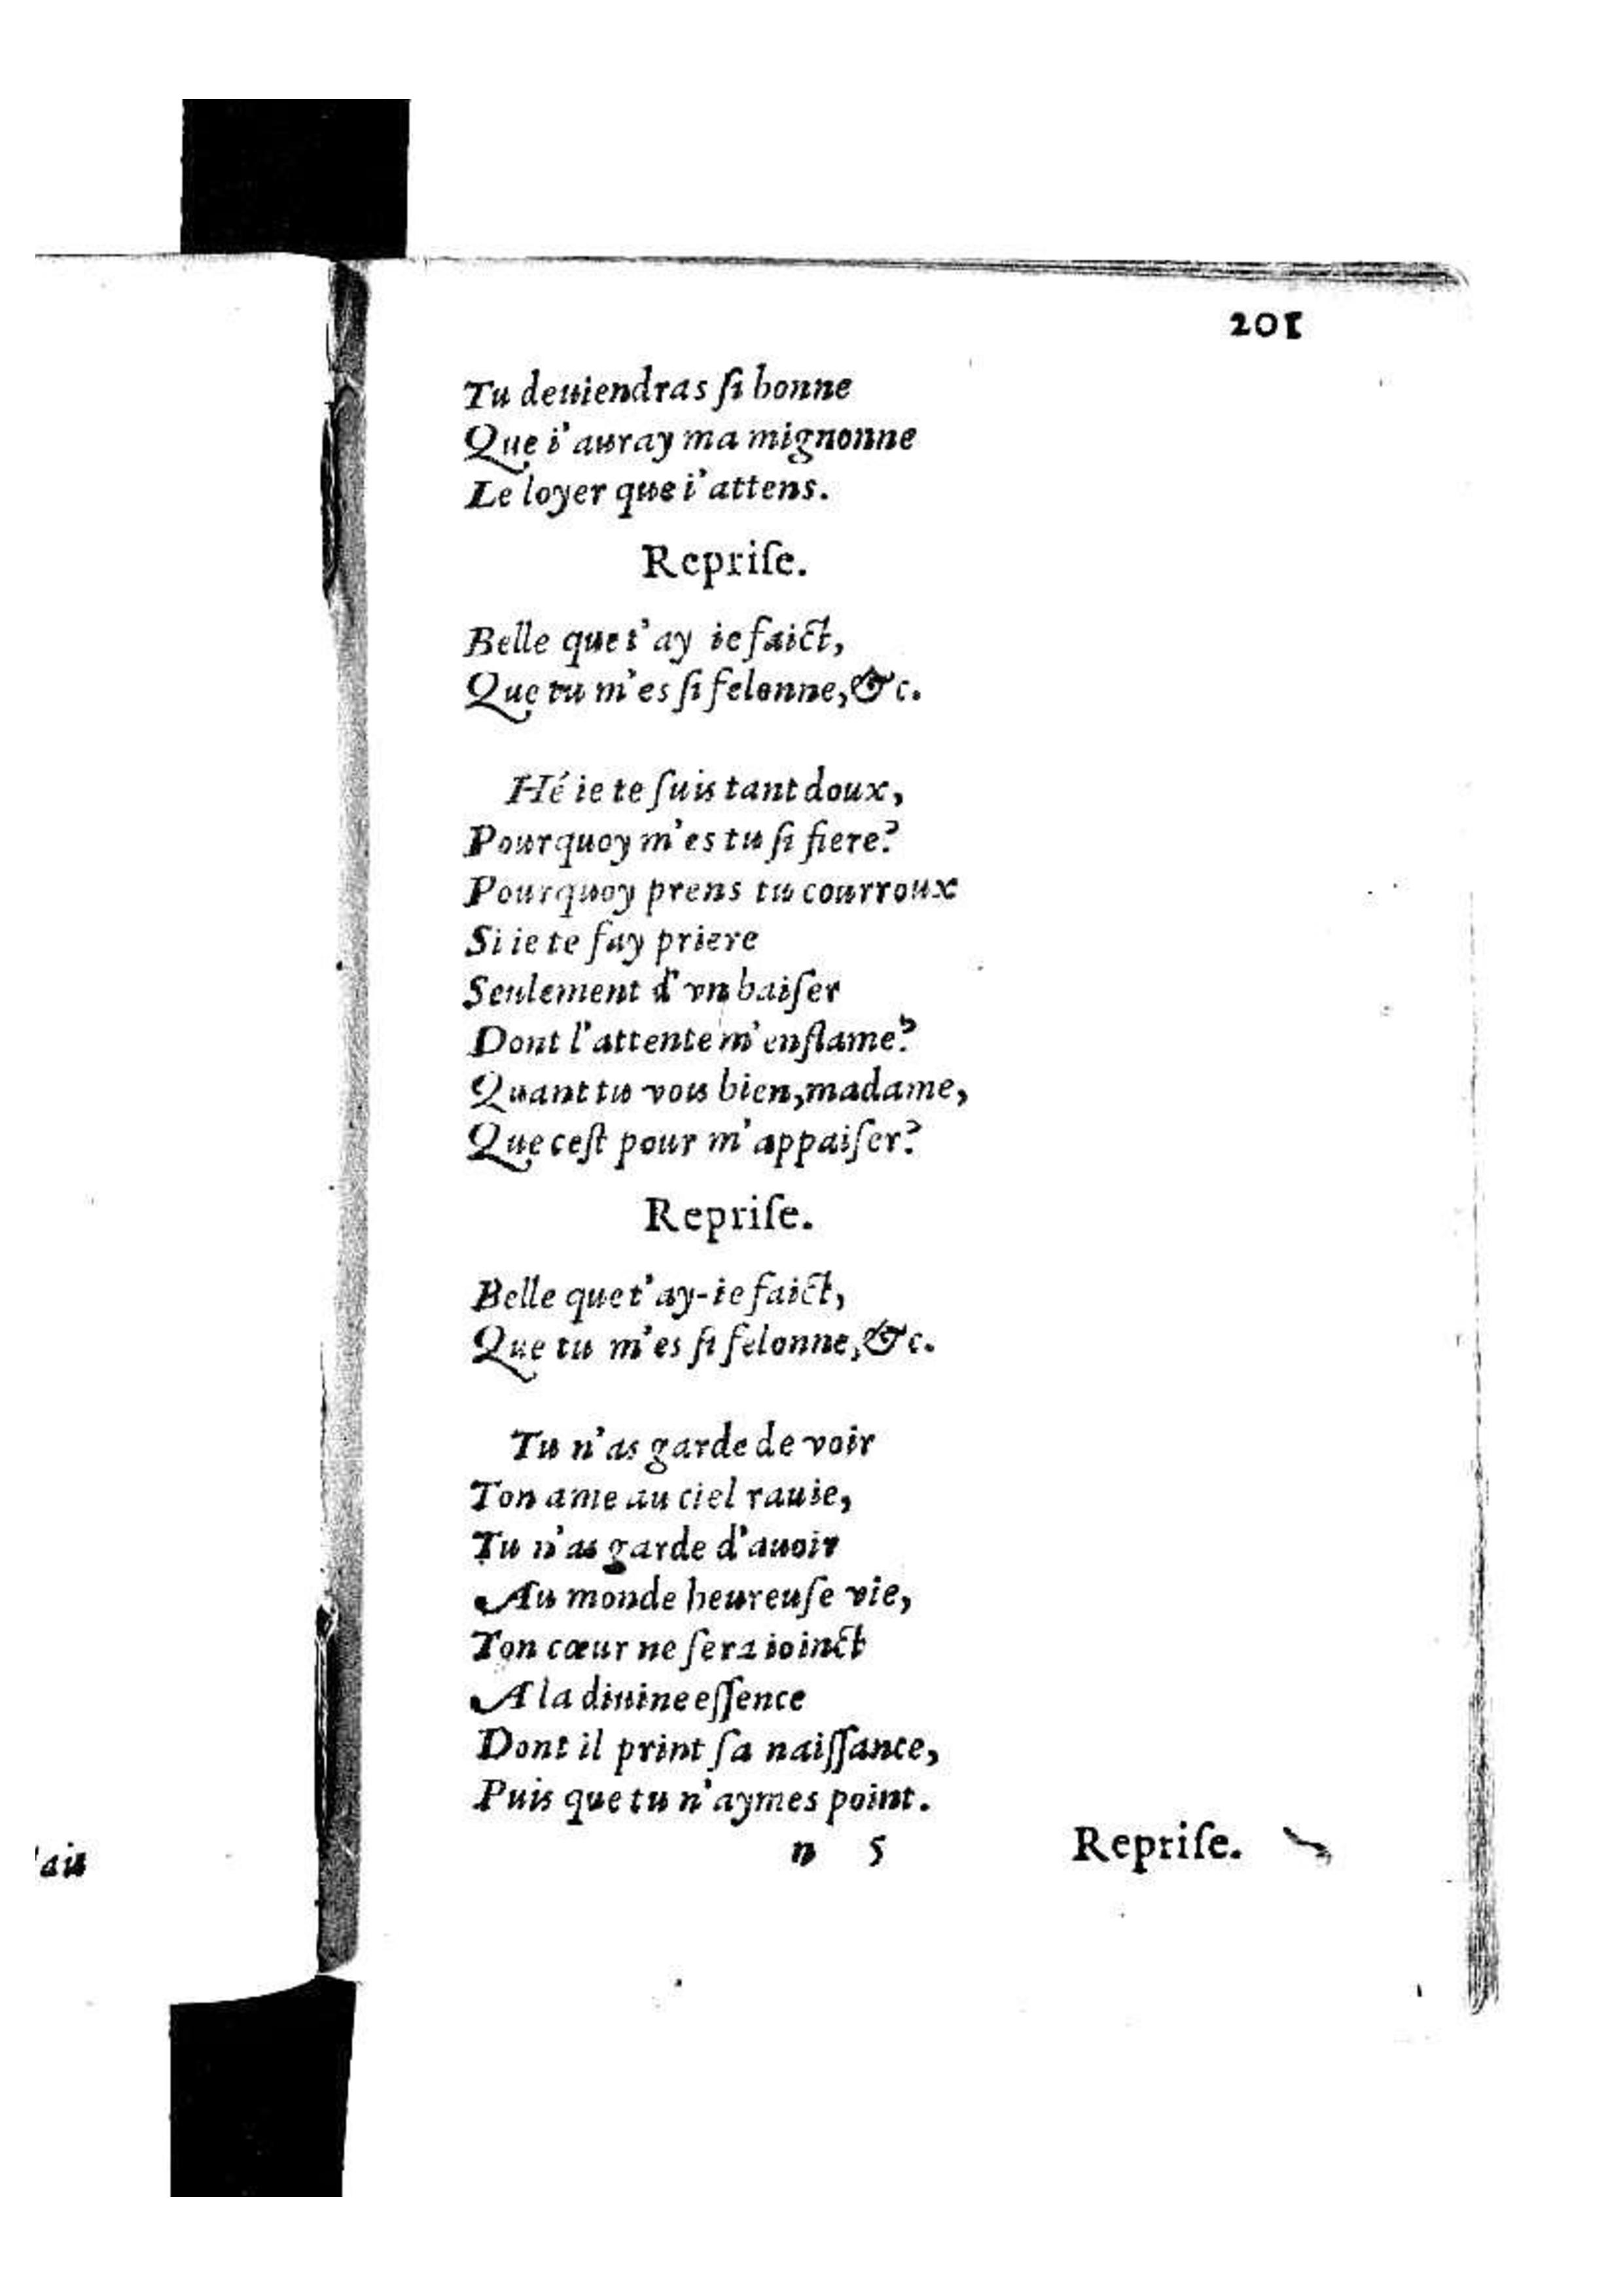 201
Tu deuiendras ſi bonne
Que i'auray ma mignonne
Le loyer que i'attens.
Repriſe.
Belle que t'ay ie faict,
Que tu m'es ſi felonne, &c.
Hé ie te ſuis tant doux,
Pourquoy m'es tu ſi fiere?
Pourquoy prens tu courroux
Si ie te fay priere
Seulement d'vn baiſer
Dont l'attente m'enflame?
Quant tu vois bien, madame,
Que ceſt pour m'appaiſer?
Repriſe.
Belle que t'ay-ie faict,
Que tu m'es ſi felonne, &c.
Tu n'as garde de voir
Ton ame au ciel rauie,
Tu n'as garde d'auoir
Au monde heureuſe vie,
Ton cœur ne ſera ioinct
A la diuine eſſence
Dont il print ſa naiſſance,
Puis que tu n'aymes point.
n 5 Repriſe.